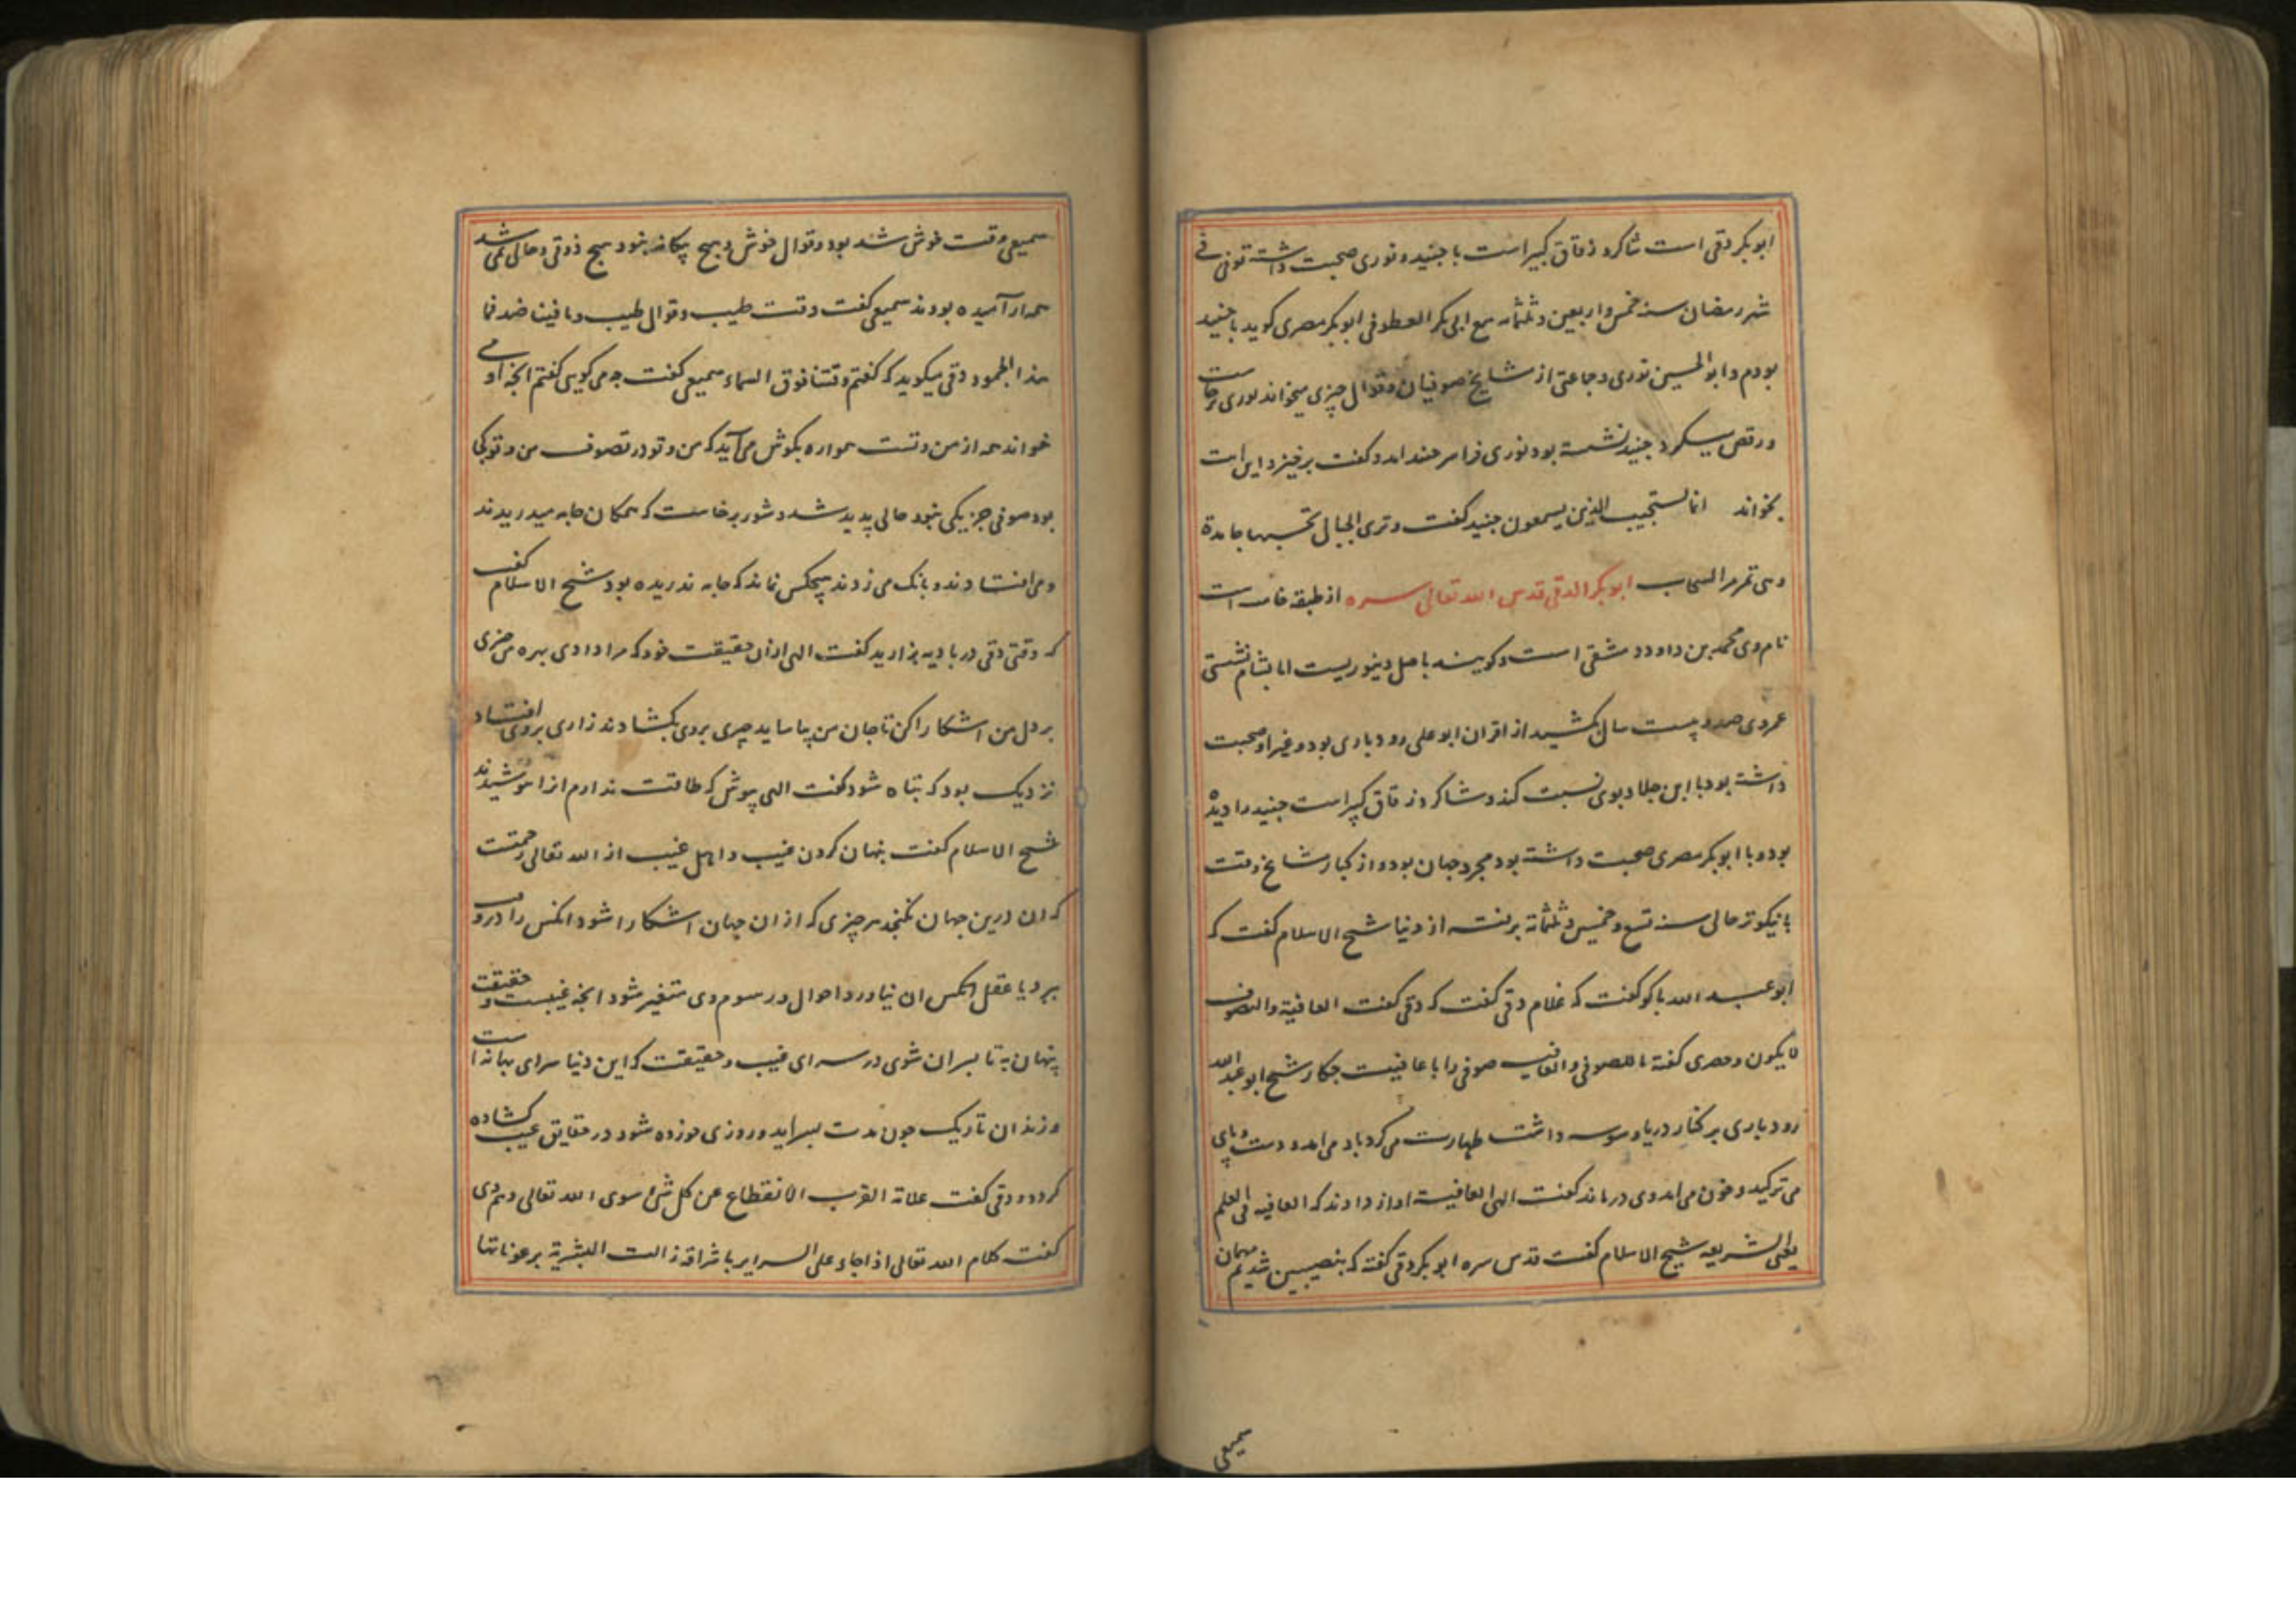 ابوبکر دقی است شاکرد زقاق کبیر است با جنید و نوری صحبت داشته توفی فی
شهر رمضان سنه خمس و اربعین و ثلثمائه مع ابی بکر العطوفی ابوبکر مصری کوید با جنید
بودم و ابوالحسین نوری و جماعتی از مشایخ صوفیان و قوال چیزی میخواند نوری برخاست
و رقص میکرد جنید نشسته بود نوری فرا سر جنید امد و کفت برخیز و این ایت
بخواند انما یستجیب الذین یسمعون جنید کفت و تری الجبال تحسبها جامدة
وهی تمر مر السحاب ابوبکر الدقی قدس الله تعالی سره از طبقه خامسه است
نام وی محمد بن داود دمشقی است و کویند باصل دینوریست اما بشام نشستی
عمر وی صد و بیست سال بکشید از اقران ابو علی رودباری بود و غیر او صحبت
داشته بود با ابن جلا و بوی نسبت کند و شاکرد زقاق کبیر است جنید را دیده
بود و با ابوبکر مصری صحبت داشته بود مجرد جهان بود و از کبار مشایخ وقت
با نیکوتر حالی سنه تسع و خمسین و ثلثمائة برفته از دنیا شیخ الاسلام کفت که
ابو عبد الله باکو کفت که غلام دقی کفت که دقی کفت العافیة والتصوف
لا یکون و حصری کفته ما للصوفی والعافیه صوفی را با عافیت جکار شیخ ابو عبد الله
رودباری بر کنار دریا وسوسه داشت طهارت می کرد باد می امد و دست و پای
می ترکید و خون می امد وی درماند کفت الهی العافیة اواز دادند که العافیه فی العلم
یعنی الشریعه شیخ الاسلام کفت قدس سره ابوبکر دقی کفته که بنصیبین شدیم مهمان
سمیعی
سمیعی وقت خوش شد بود و قوال خوش و هیچ بیکانه نبود هیچ ذوقی و حالی نمی شد
همه ارامیده بودند سمیعی کفت وقت طیب و قوال طیب و ما فینا ضد فما
هذا الجمود دقی میکوید که کفتم وقتنا فوق السماء سمیعی کفت جه می کویی کفتم انجه او می
خواند همه از من و تست همواره بکوش می آید که من و تو در تصوف من و تو کجا
بود صوفی جز یکی نبود حالی پدید شد و شور برخاست که همکان جامه میدریدند
و می افتادند و بانک می زدند هیچکس نماند که جامه ندریده بود شیخ الاسلام کفت
که وقتی دقی در بادیه بزارید کفت الهی از ان حقیقت خود که مرا دادی بهره من چیزی
بر دل من اشکارا کن تا جان من بیاساید چیزی بروی بکشادند زاری بروی افتاد
نزدیک بود که تباه شود کفت الهی بپوش که طاقت ندارم انرا پوشیدند
شیخ الاسلام کفت پنهان کردن غیب و اهل غیب از الله تعالی رحمتست
که ان درین جهان نکنجد هر چیزی که از ان جهان اشکارا شود انکس را در رو
ببرد یا عقل انکس ان نیاورد احوال و رسوم وی متغیر شود انجه غیبست و حقیقت
پنهان به تا بسر ان شوی در سرای غیب و حقیقت که این دنیا سرای بهانه است
و زندان تاریک جون مدت بسر اید و روزی خورده شود در حقایق غیب کشاده
کردد و دقی کفت علامة القرب الانقطاع عن کل شئ سوی الله تعالی و هم وی
کفت کلام الله تعالی اذا جاء علی السرایر باشراقه زالت البشریة برعوناتها